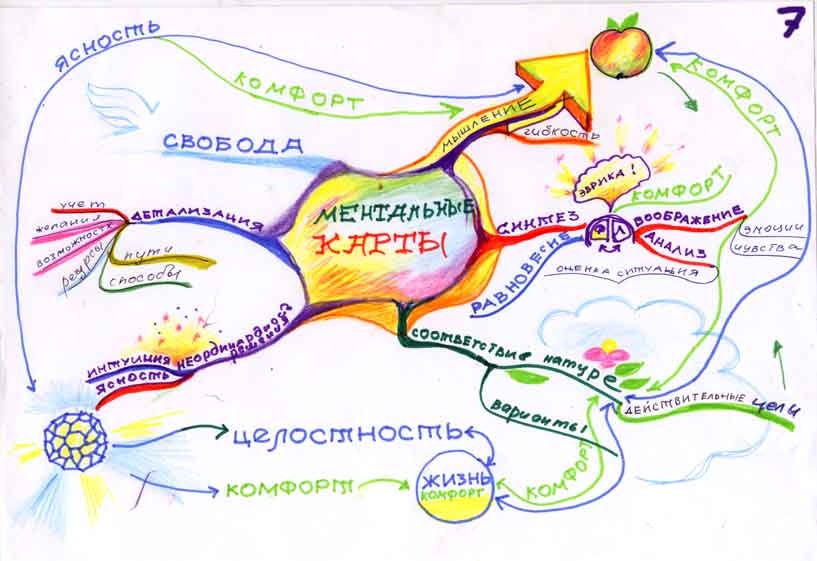 7
ЯСНОСТЬ
КОМФОРТ
КОМФОРТ
МЫШЛЕНИЕ
ГИБКОСТЬ
СВОБОДА
ЭВРИКА!
КОМФОРТ
МЕНТАЛЬНЫЕ
КАРТЫ
УЧЕТ
ЖЕЛАНИЯ
ВОЗМОЖНОСТИ
РЕСУРСЫ
ДЕТАЛИЗАЦИЯ
ПУТИ
СПОСОБЫ
СИНТЕЗ
П Л
ВООБРАЖЕНИЕ
АНАЛИЗ
ЭМОЦИИ
ЧУВСТВА
РАВНОВЕСИЕ
ОЦЕНКА СИТУАЦИЯ
НЕОРДИНАРНОГО
РЕШЕНИЯ
ИНТУИЦИЯ
ЯСНОСТЬ
СООТВЕТСТВИЕ НАТУРЕ
ВАРИАНТЫ
ДЕЙСТВИТЕЛЬНЫЕ ЦЕЛИ
ЦЕЛОСТНОСТЬ
КОМФОРТ
ЖИЗНЬ
КОМФОРТ
КОМФОРТ